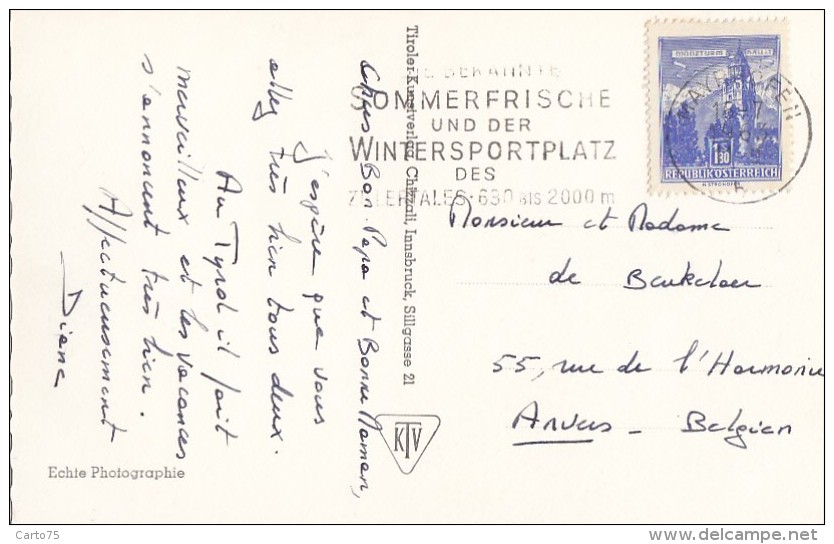 Chers Bon-Papa et Bonne Maman,
J'espère que vous
allez très bien tous deux.
Au Tyrol il fait
merveilleux et les vacances
s'annoncent très bien.
Affectueusement
Diane
Echte Photographie
Tiroler-Kunstverlag Chizzali, Innsbruck, Sillgasse 21
KTV
DIE BEKANNTE
SOMMERFRISCHE
UND DER
WINTERSPORTPLATZ
DES
ZILLERTALES·630 BIS 2000 m
MAYRHOFEN
MÜNZTURM HALL I.T.
1.30
REPUBLIK ÖSTERREICH
Monsieur et Madame
de Beukelaer
55, rue de l'Harmonie
Anvers - Belgien
Carto75
www.delcampe.net